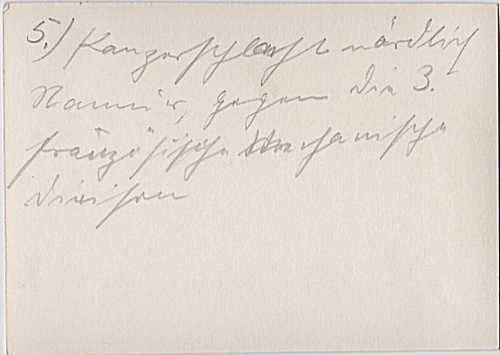 5.) Panzerschlacht nördlich
Namur, gegen die 3.
französische Mechanische
Division